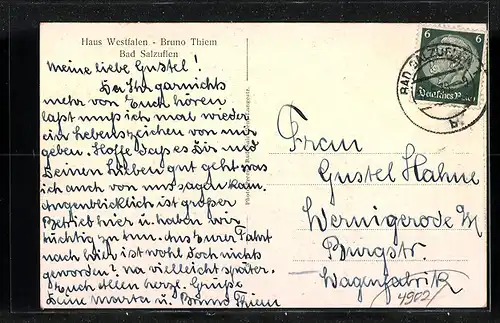 Haus Westfalen - Bruno Thiem
Bad Salzuflen
Meine liebe Gustel!
Da Ihr garnichts
mehr von Euch hören
laßt muß ich mal wieder
ein Lebenszeichen von uns
geben. Hoffe, daß es Dir und
Deinen Lieben gut geht, was
ich auch von uns sagen kann.
Augenblicklich ist großer
Betrieb hier u. haben wir
tüchtig zu tun. Aus Eurer Fahrt
nach hier ist wohl doch nichts
geworden? na vielleicht später.
Euch allen herzl. Grüße
Deine Marta u. Bruno Thiem
6 6
Deutsches Reich
BAD SALZUFLEN
b
Frau
Gustel Hahne
Wernigerode a/H
Burgstr.
Wagenfabrik
4902